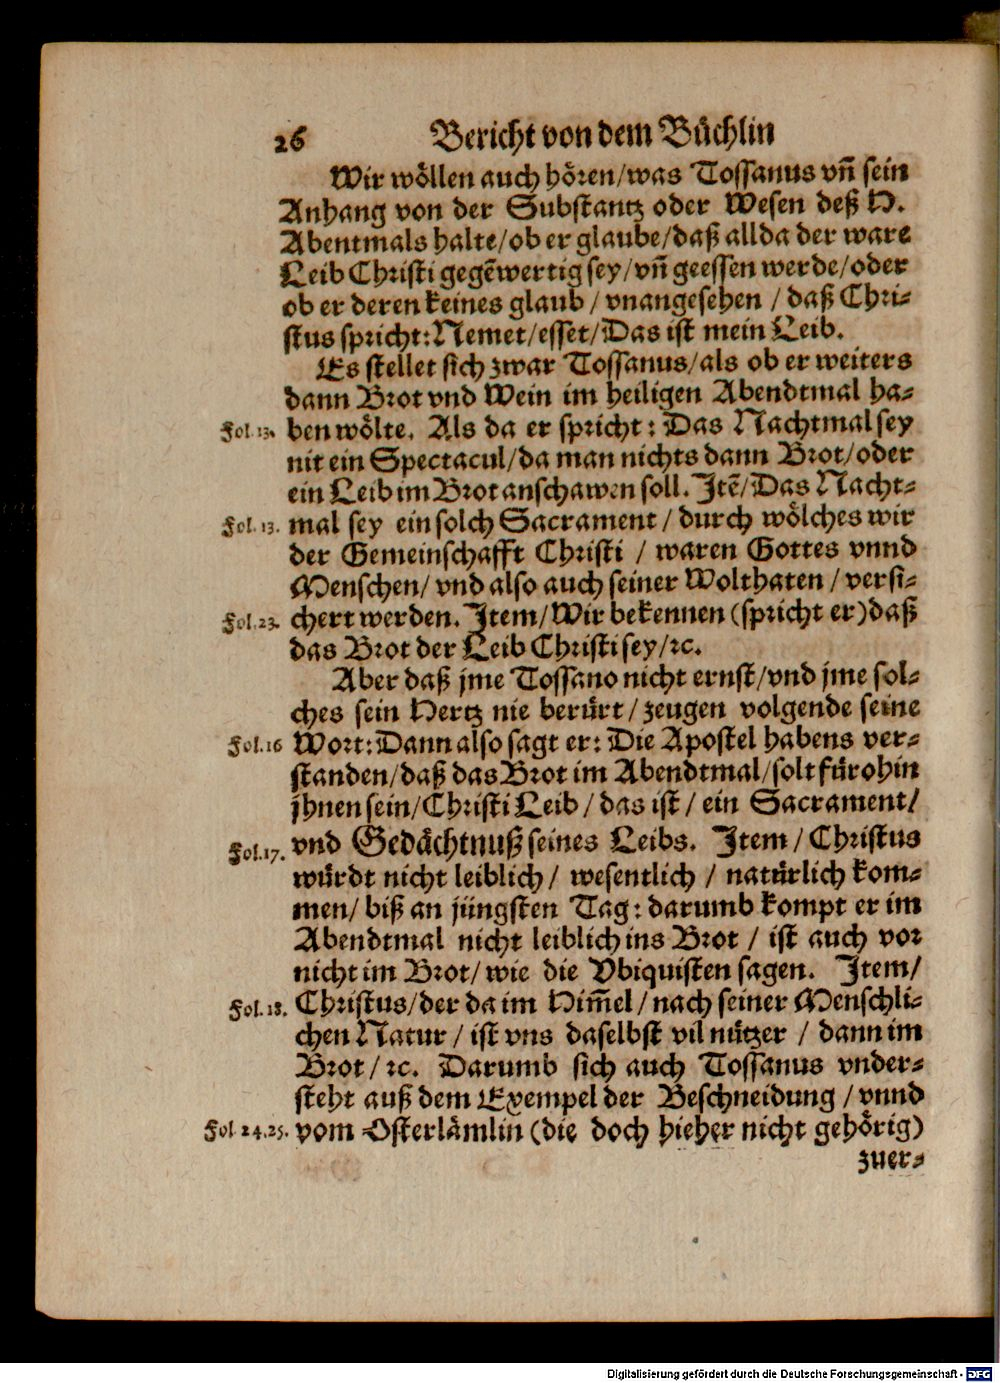 26 Bericht von dem Büchlin
Wir wöllen auch hören/was Tossanus vn̄ sein
Anhang von der Substantz oder Wesen deß H.
Abentmals halte/ob er glaube/daß allda der ware
Leib Christi gegēwertig sey/vn̄ geessen werde/oder
ob er deren keines glaub/vnangesehen/daß Chri-
stus spricht: Nemet/esset/Das ist mein Leib.
Es stellet sich zwar Tossanus/als ob er weiters
dann Brot vnd Wein im heiligen Abendtmal ha-
Fol. 13. ben wölte. Als da er spricht: Das Nachtmal sey
nit ein Spectacul/da man nichts dann Brot/oder
ein Leib im Brot anschawen soll. Jtē/Das Nacht-
Fol. 13. mal sey ein solch Sacrament/durch wölches wir
der Gemeinschafft Christi/waren Gottes vnnd
Menschen/vnd also auch seiner Wolthaten/versi-
Fol. 23. chert werden. Jtem/Wir bekennen (spricht er) daß
das Brot der Leib Christi sey/ꝛc.
Aber daß jme Tossano nicht ernst/vnd jme sol-
ches sein Hertz nie berürt/zeugen volgende seine
Fol. 16 Wort: Dann also sagt er: Die Apostel habens ver-
standen/daß das Brot im Abendtmal/solt fürohin
jhnen sein/Christi Leib/das ist/ein Sacrament/
Fol. 17. vnd Gedächtnuß seines Leibs. Jtem/Christus
würdt nicht leiblich/wesentlich/natürlich kom-
men/biß an jüngsten Tag: darumb kompt er im
Abendtmal nicht leiblich ins Brot/ist auch vor
nicht im Brot/wie die Vbiquisten sagen. Jtem/
Fol. 18. Christus/der da im Him̄el/nach seiner Menschli-
chen Natur/ist vns daselbst vil nützer/dann im
Brot/ꝛc. Darumb sich auch Tossanus vnder-
steht auß dem Exempel der Beschneidung/vnnd
Fol 24.25. vom Osterlämlin (die doch hieher nicht gehörig)
zuer-
Digitalisierung gefördert durch die Deutsche Forschungsgemeinschaft - DFG